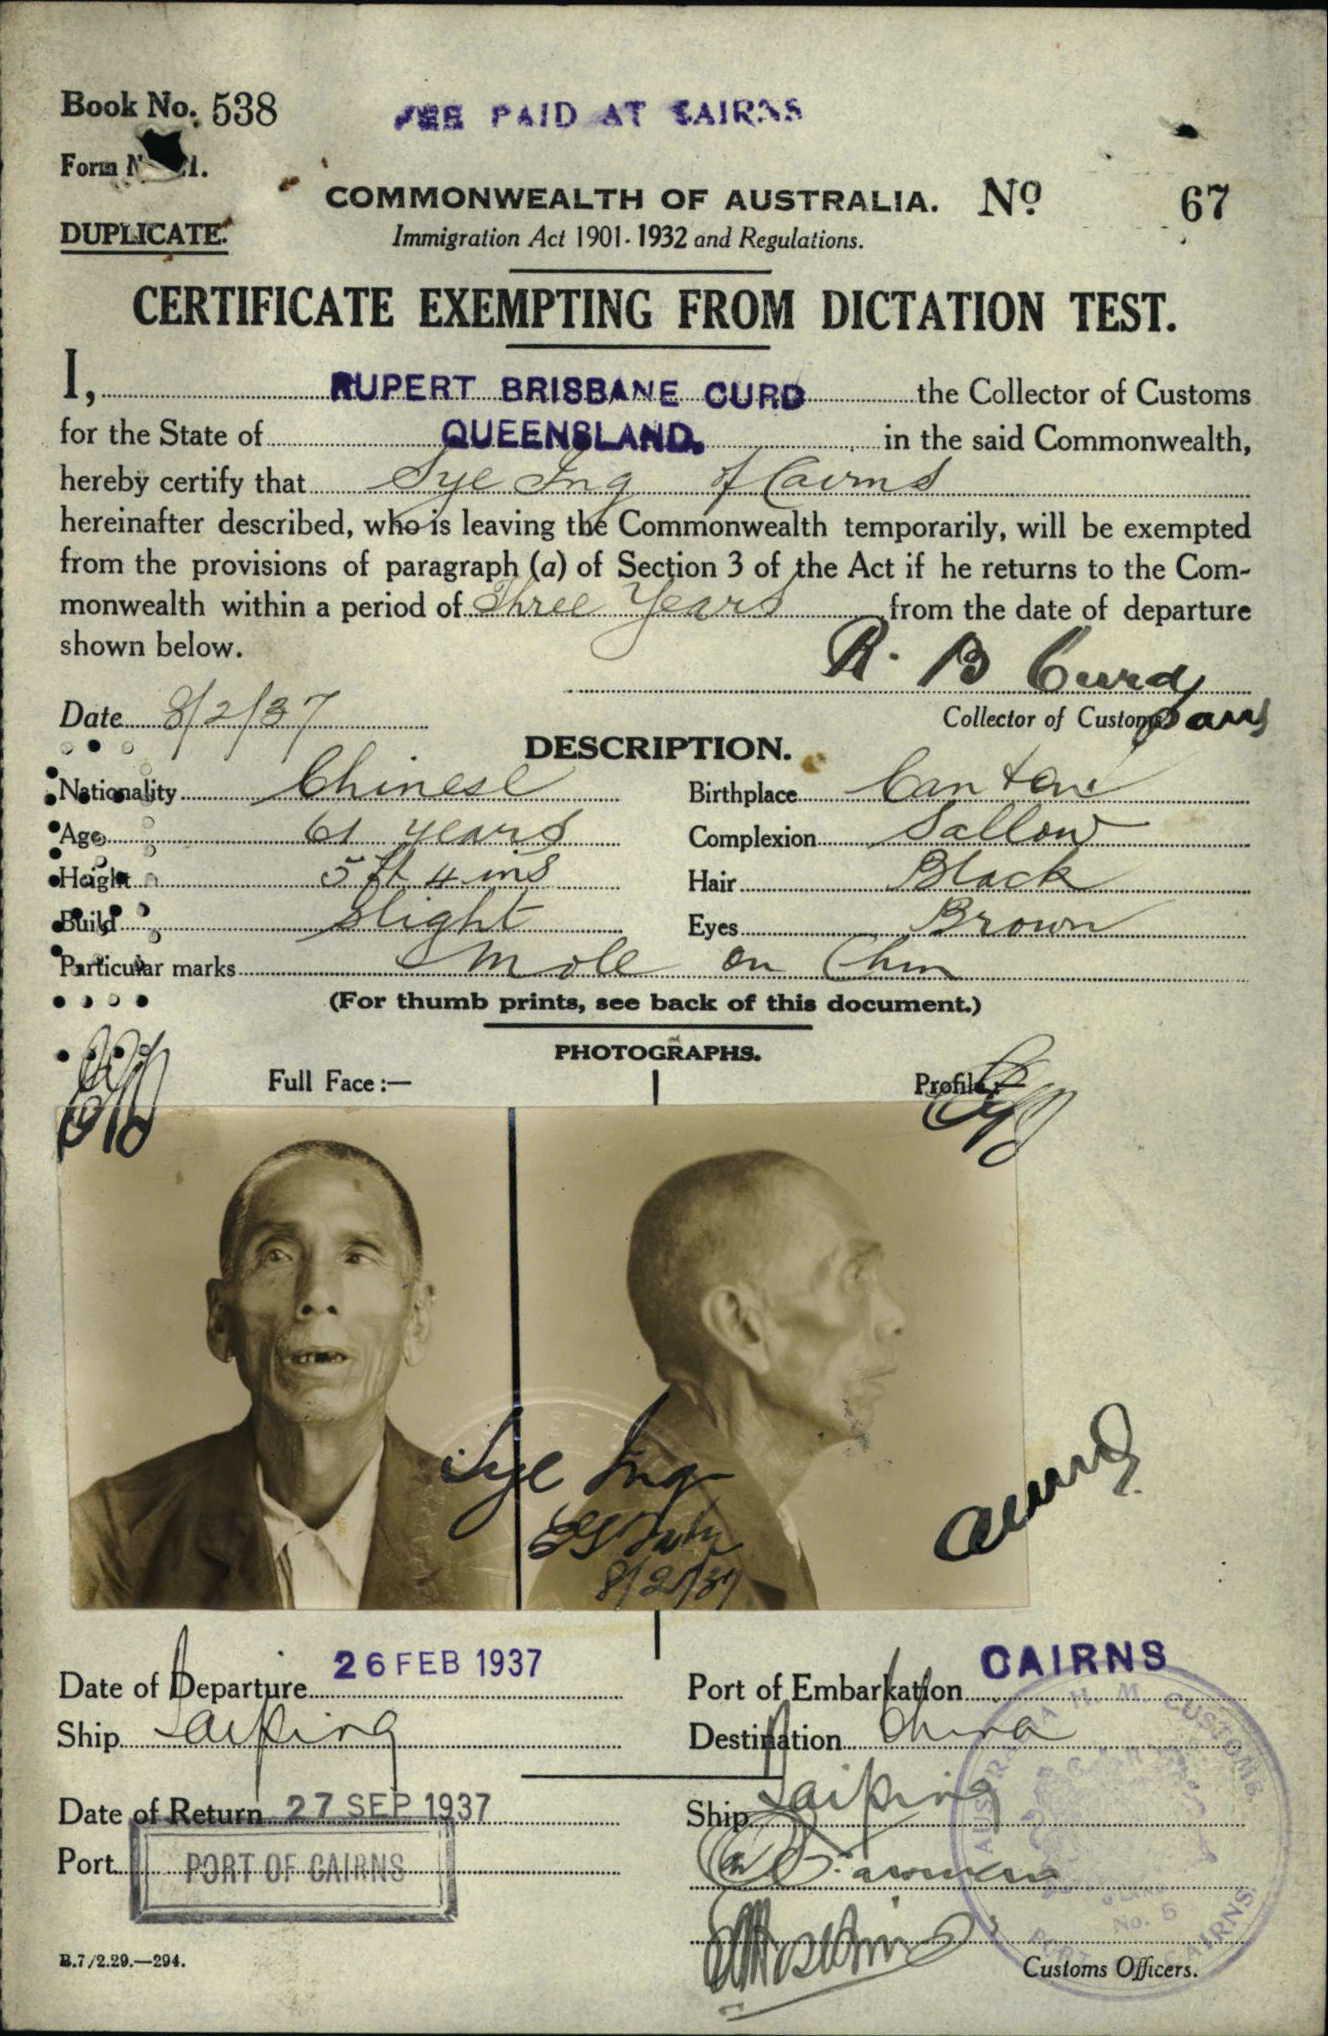 Book No. 538
FEE PAID AT CAIRNS
Form N 21.
COMMONWEALTH OF AUSTRALIA. No 67
DUPLICATE.
Immigration Act 1901-1932 and Regulations.
CERTIFICATE EXEMPTING FROM DICTATION TEST.
I, RUPERT BRISBANE CURD the Collector of Customs
for the State of QUEENSLAND. in the said Commonwealth,
hereby certify that Sye Ing of Cairns
hereinafter described, who is leaving the Commonwealth temporarily, will be exempted
from the provisions of paragraph (a) of Section 3 of the Act if he returns to the Com-
monwealth within a period of Three Years from the date of departure
shown below.
R. B Curd
Date 8/2/37
Collector of Customs
DESCRIPTION.
Nationality Chinese
Birthplace Canton
Age 61 years
Complexion Sallow
Height 5 ft 4 ins
Hair Black
Build Slight
Eyes Brown
Particular marks Mole on Chin
(For thumb prints, see back of this document.)
PHOTOGRAPHS.
Full Face :—
Profile :—
Sye Ing
8/2/37
Date of Departure 26 FEB 1937
Port of Embarkation CAIRNS
Ship Taiping
Destination China
Date of Return 27 SEP 1937
Ship Taiping
Port PORT OF CAIRNS
AUSTRALIA H. M. CUSTOMS.
No. 5
PORT CAIRNS
B.7/2.29.—294.
Customs Officers.